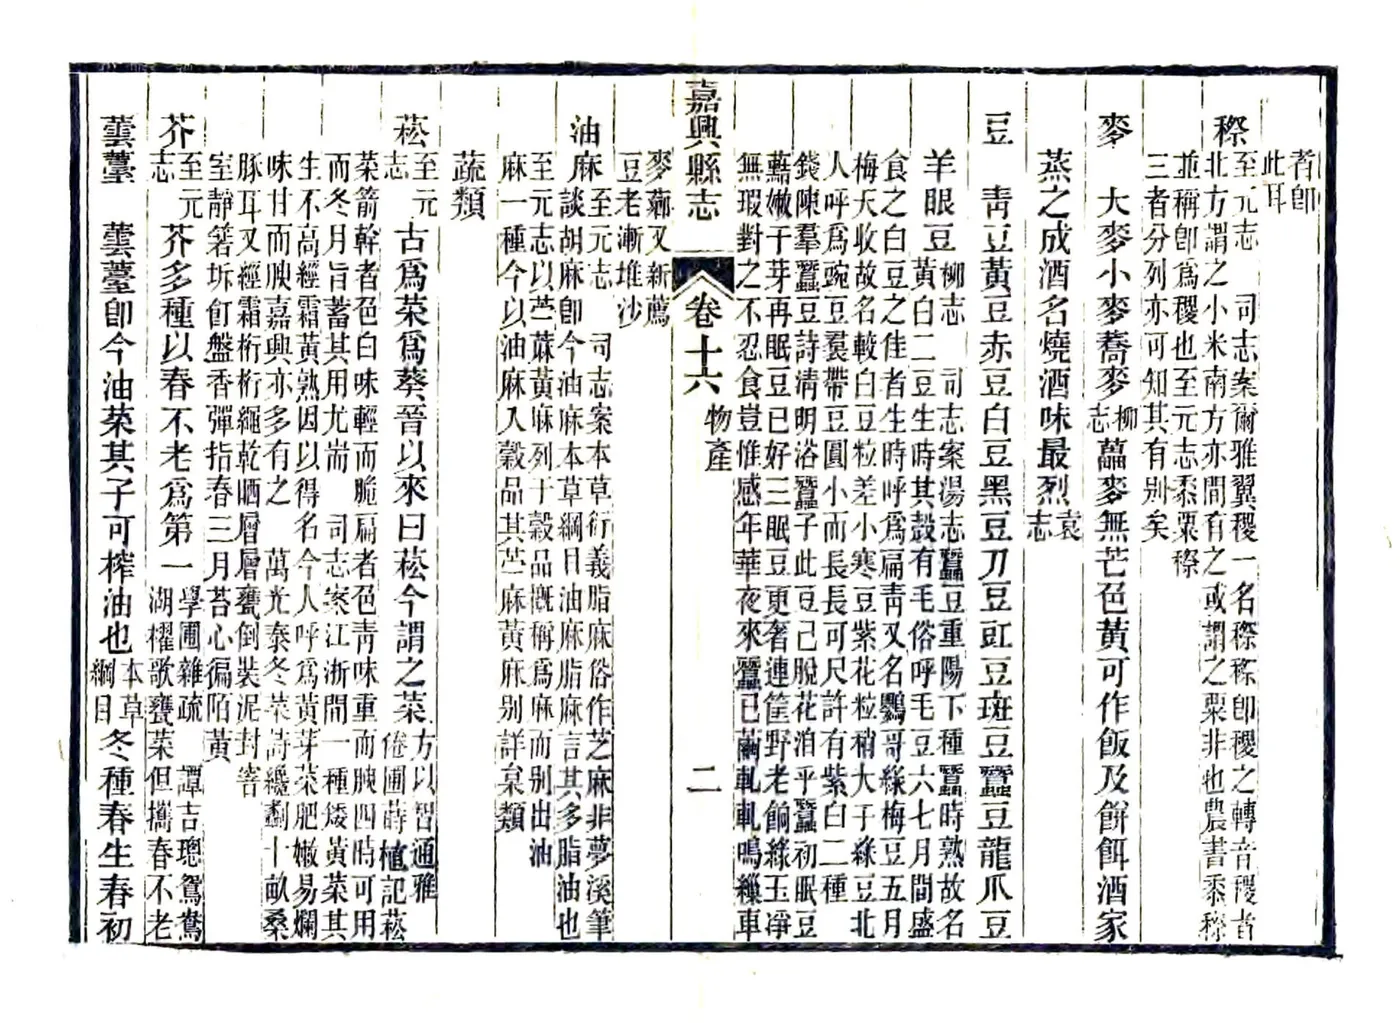 者卽
此耳
穄 至元志 司志案爾雅翼稷一名穄穄卽稷之轉音稷者
北方謂之小米南方亦間有之或謂之粟非也農書黍穄
並稱卽爲稷也至元志黍粟穄
三者分列亦可知其有別矣
麥 大麥小麥蕎麥柳志藟麥無芒色黃可作飯及餅餌酒家
蒸之成酒名燒酒味最烈袁志
豆 青豆黃豆赤豆白豆黑豆刀豆豇豆斑豆蠶豆龍爪豆
羊眼豆 柳志 司志案湯志蠶豆重陽下種蠶時熟故名
黃白二豆生時其殼有毛俗呼毛豆六七月間盛
食之白豆之佳者生時呼爲扁青又名鸚哥綠梅豆五月
梅天收故名較白豆粒差小寒豆紫花粒稍大于綠豆北
人呼爲豌豆裙帶豆圓小而長長可尺許有紫白二種
錢陳羣蠶豆詩清明浴蠶子此豆己脫花洎乎蠶初眠豆
嫩于芽再眠豆已好三眠豆更奢連筐野老餉綠玉凈
無瑕對之不忍食豈惟感年華夜來蠶已繭軋軋鳴繅車
嘉興縣志 卷十六 物產 二
麥薌又新薦
豆老漸堆沙
油麻 至元志 司志案本草衍義脂麻俗作芝麻非夢溪筆
談胡麻卽今油麻本草綱目油麻脂麻言其多脂油也
至元志以苎蔴黃麻列于穀品慨稱爲麻而別出油
麻一種今以油麻入穀品其苎麻黃麻別詳枲類
蔬類
菘 至元志 古爲菜爲葵晉以來曰菘今謂之菜 方以智通雅
倦圃蒔植記菘
菜箭幹者色白味輕而脆扁者色靑味重而腴四時可用
而冬月旨蓄其用尤耑 司志案江浙間一種矮黃菜其
生不高經霜黃熟因以得名今人呼爲黃芽菜肥嫩易爛
味甘而腴嘉興亦多有之 萬光泰冬菜詩纔劚十畝桑
豚耳又經霜桁桁繩乾晒層層甕倒裝泥封窖
室靜箸坼飣盤香彈指春三月苔心徧陌黃
芥 至元志 芥多種以春不老爲第一 學圃雜疏 譚吉璁鴛鴦
湖櫂歌甕菜但攜春不老
蕓薹 蕓薹卽今油菜其子可榨油也 本草綱目 冬種春生春初